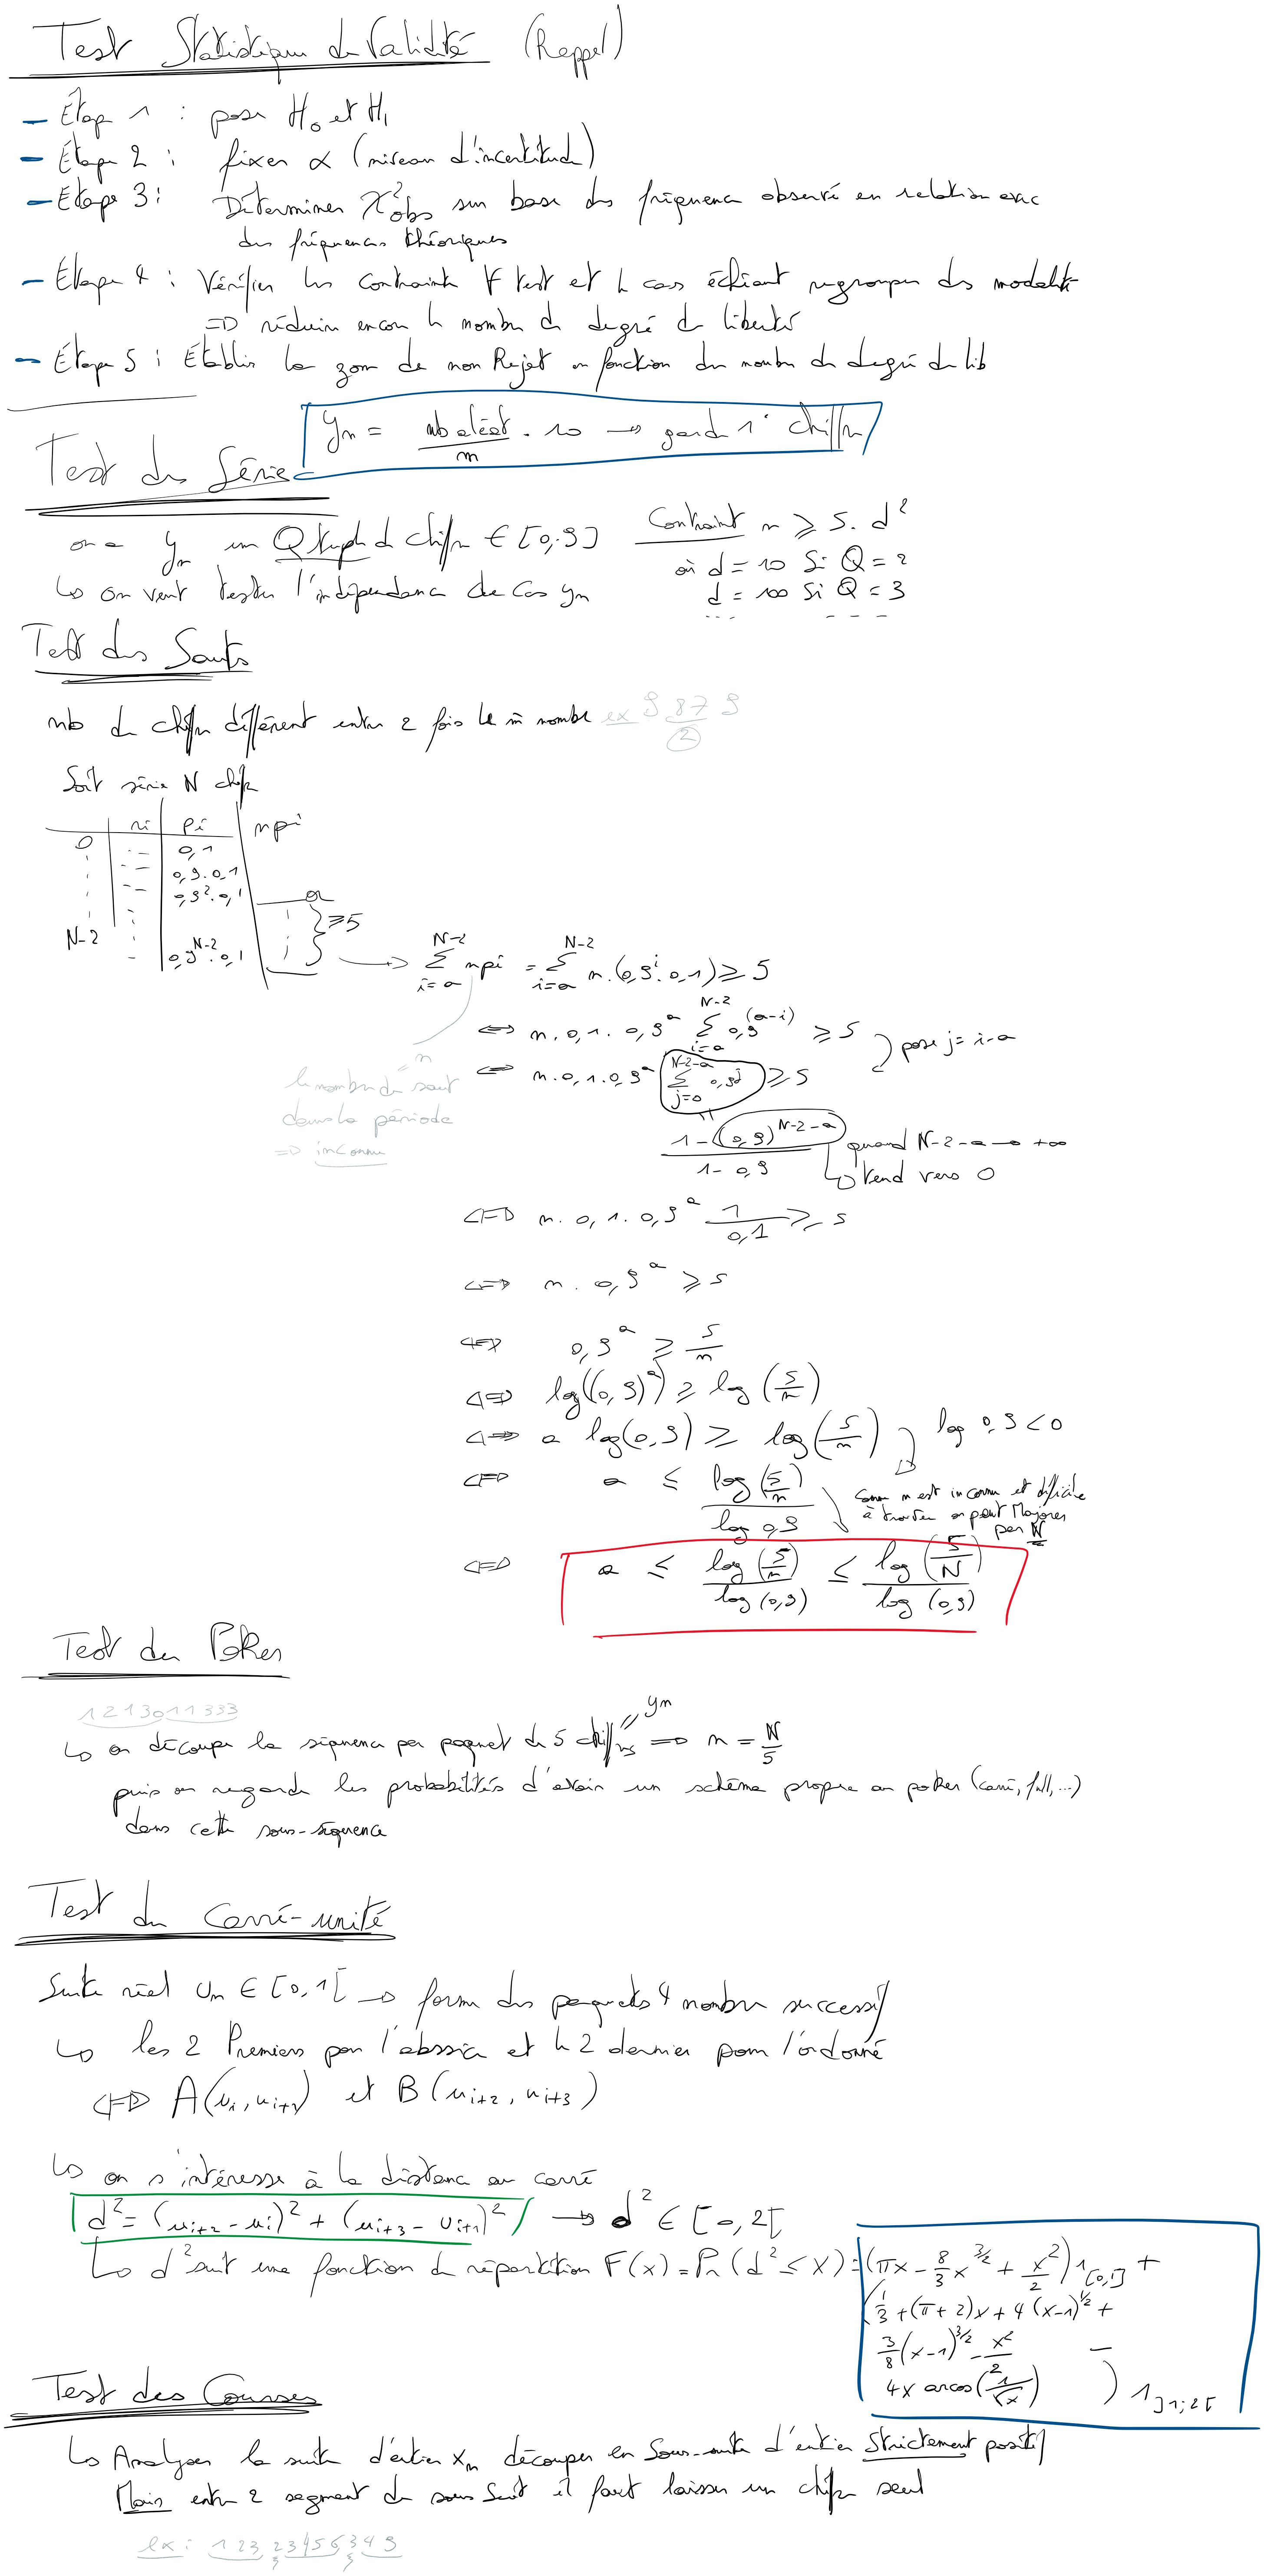 Test Statistique de Validité (Rappel)
- Étape 1 : poser H₀ et H₁
- Étape 2 : fixer α (niveau d'incertitude)
- Étape 3 : Déterminer χ²obs sur base des fréquence observé en relation avec
des fréquences théoriques
- Étape 4 : Vérifier les contrainte # test et le cas échéant regrouper des modalité
=> réduire encore le nombre de degré de liberté
- Étape 5 : Établir la zone de non Rejet en fonction du nombre de degré de lib
yn = nb aléat/m . 10 → garde 1° chiffre
Test des Série
on a yn un Q tuple de chiffre ∈ [0,9] Contraint n ≥ 5.d²
où d = 10 Si Q = 2
↳ on veut tester l'indépendance de cas yn d = 100 Si Q = 3
Test des Sauts
nb de chiffre différent entre 2 fois le m̄ nombre ex 9 87 9
2
Soit série N chiffre
ri | pi | npi
0 0,1
0,9.0,1
0,9².0,1 a
N-2 0,9^(N-2).0,1 } ≥5 → Σ(i=a → N-2) npi = Σ(i=a → N-2) n.(0,9^i.0,1) ≥ 5
<=> n.0,1.0,9^a Σ(i=a → N-2) 0,9^(a-i) ≥ 5 pose j = i-a
<=> n.0,1.0,9^a Σ(j=0 → N-2-a) 0,9^j ≥ 5
n
le nombre de saut
dans la période
=> inconnu
1-(0,9)^(N-2-a) / 1-0,9 quand N-2-a → +∞
↳ tend vers 0
<=> n.0,1.0,9^a 1/0,1 ≥ 5
<=> n.0,9^a ≥ 5
<=> 0,9^a ≥ 5/n
<=> log((0,9)^a) ≥ log(5/n)
<=> a log(0,9) ≥ log(5/n) log 0,9 < 0
<=> a ≤ log(5/n) / log 0,9 comme n est inconnu et difficile
à trouver on peut Majorer
par N
<=> a ≤ log(5/n)/log(0,9) ≤ log(5/N)/log(0,9)
Test du Poker
1213011333
↳ on découpe la séquence par paquet de 5 chiffres = yn => n = N/5
puis on regarde les probabilités d'avoir un schéma propre au poker (carré, full, ...)
dans cette sous-séquence
Test du Carré-unité
Suite réel Un ∈ [0,1[ → forme des paquets 4 nombre successif
↳ les 2 Premiers pour l'abssice et le 2 dernier pour l'ordonné
<=> A(ui, ui+1) et B(ui+2, ui+3)
↳ on s'intéresse à la distance au carré
d² = (ui+2 - ui)² + (ui+3 - Ui+1)² → d² ∈ [0,2[
↳ d² suit une fonction de répartition F(x) = Pr(d² ≤ X) = (πx - 8/3 x^(3/2) + x²/2) 1[0,1] +
(1/3 + (π+2)x + 4(x-1)^(1/2) +
3/8 (x-1)^(3/2) - x²/2 -
4x arcos(1/√x)) 1]1;2[
Test des Courses
↳ Analyser la suite d'entier Xn découper en Sous-suite d'entier Strictement positif
Mais entre 2 segment de sous Suit il faut laisser un chiffre seul
ex : 123, 2, 3456, 3, 49